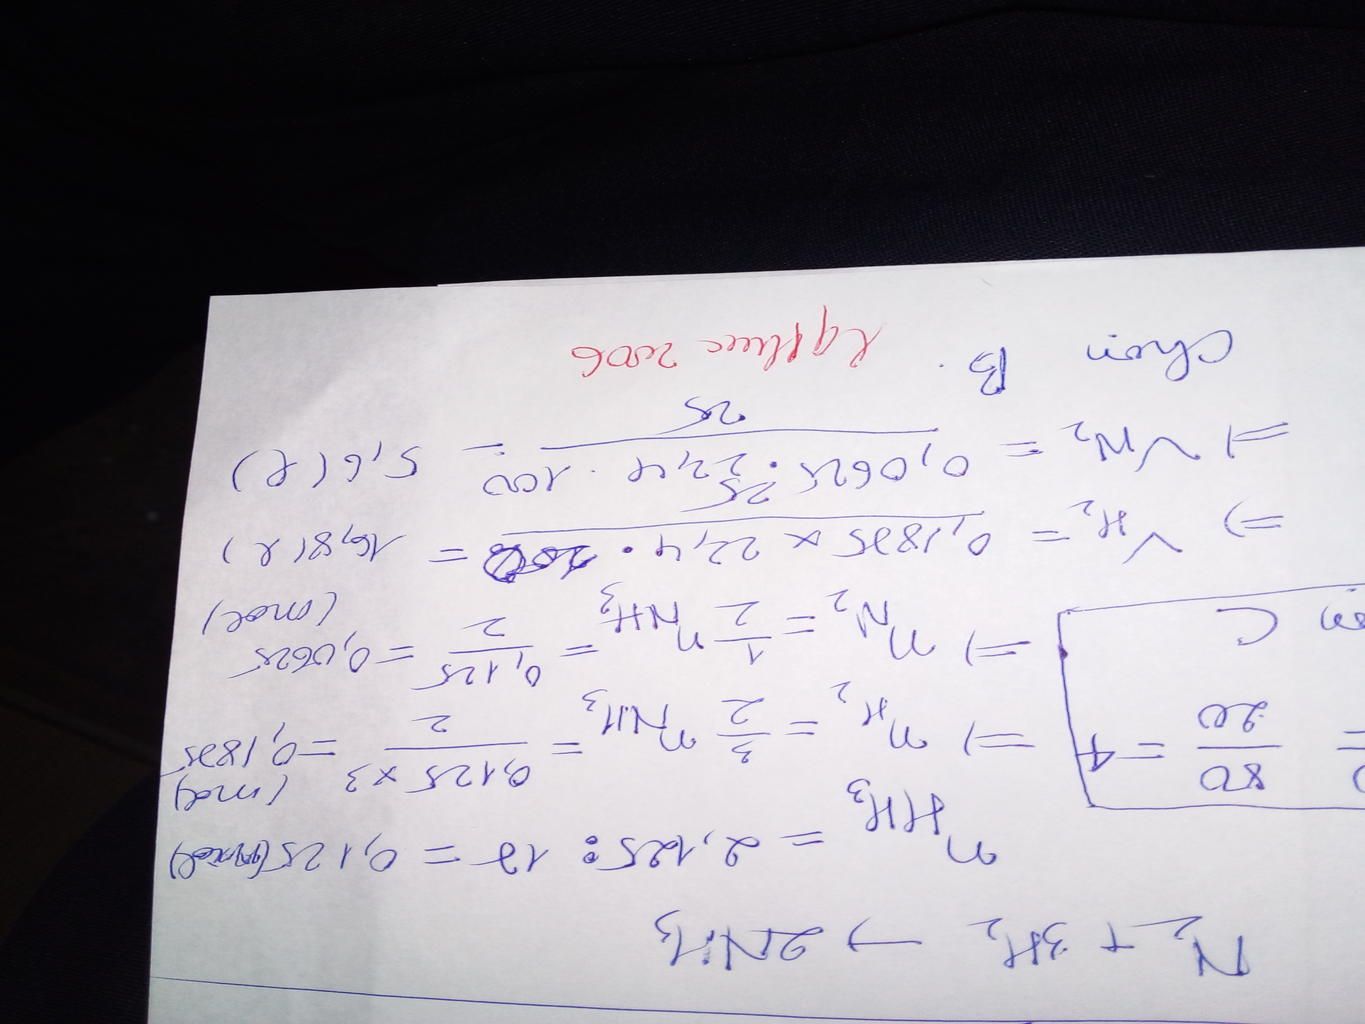 N₂ + 3H₂ → 2NH₃
n NH₃ = 2,125 : 17 = 0,125 (mol)
=) n H₂ = 3/2 n NH₃ = 0,125 x 3 / 2 = 0,1875 (mol)
=) n N₂ = 1/2 n NH₃ = 0,125 / 2 = 0,0625 (mol)
=) V H₂ = 0,1875 x 22,4 . 100 / 25 = 16,8 (l)
=) V N₂ = 0,0625 . 22,4 . 100 / 25 = 5,6 (l)
Chọn B.
2006
80 / 20 = 4
C